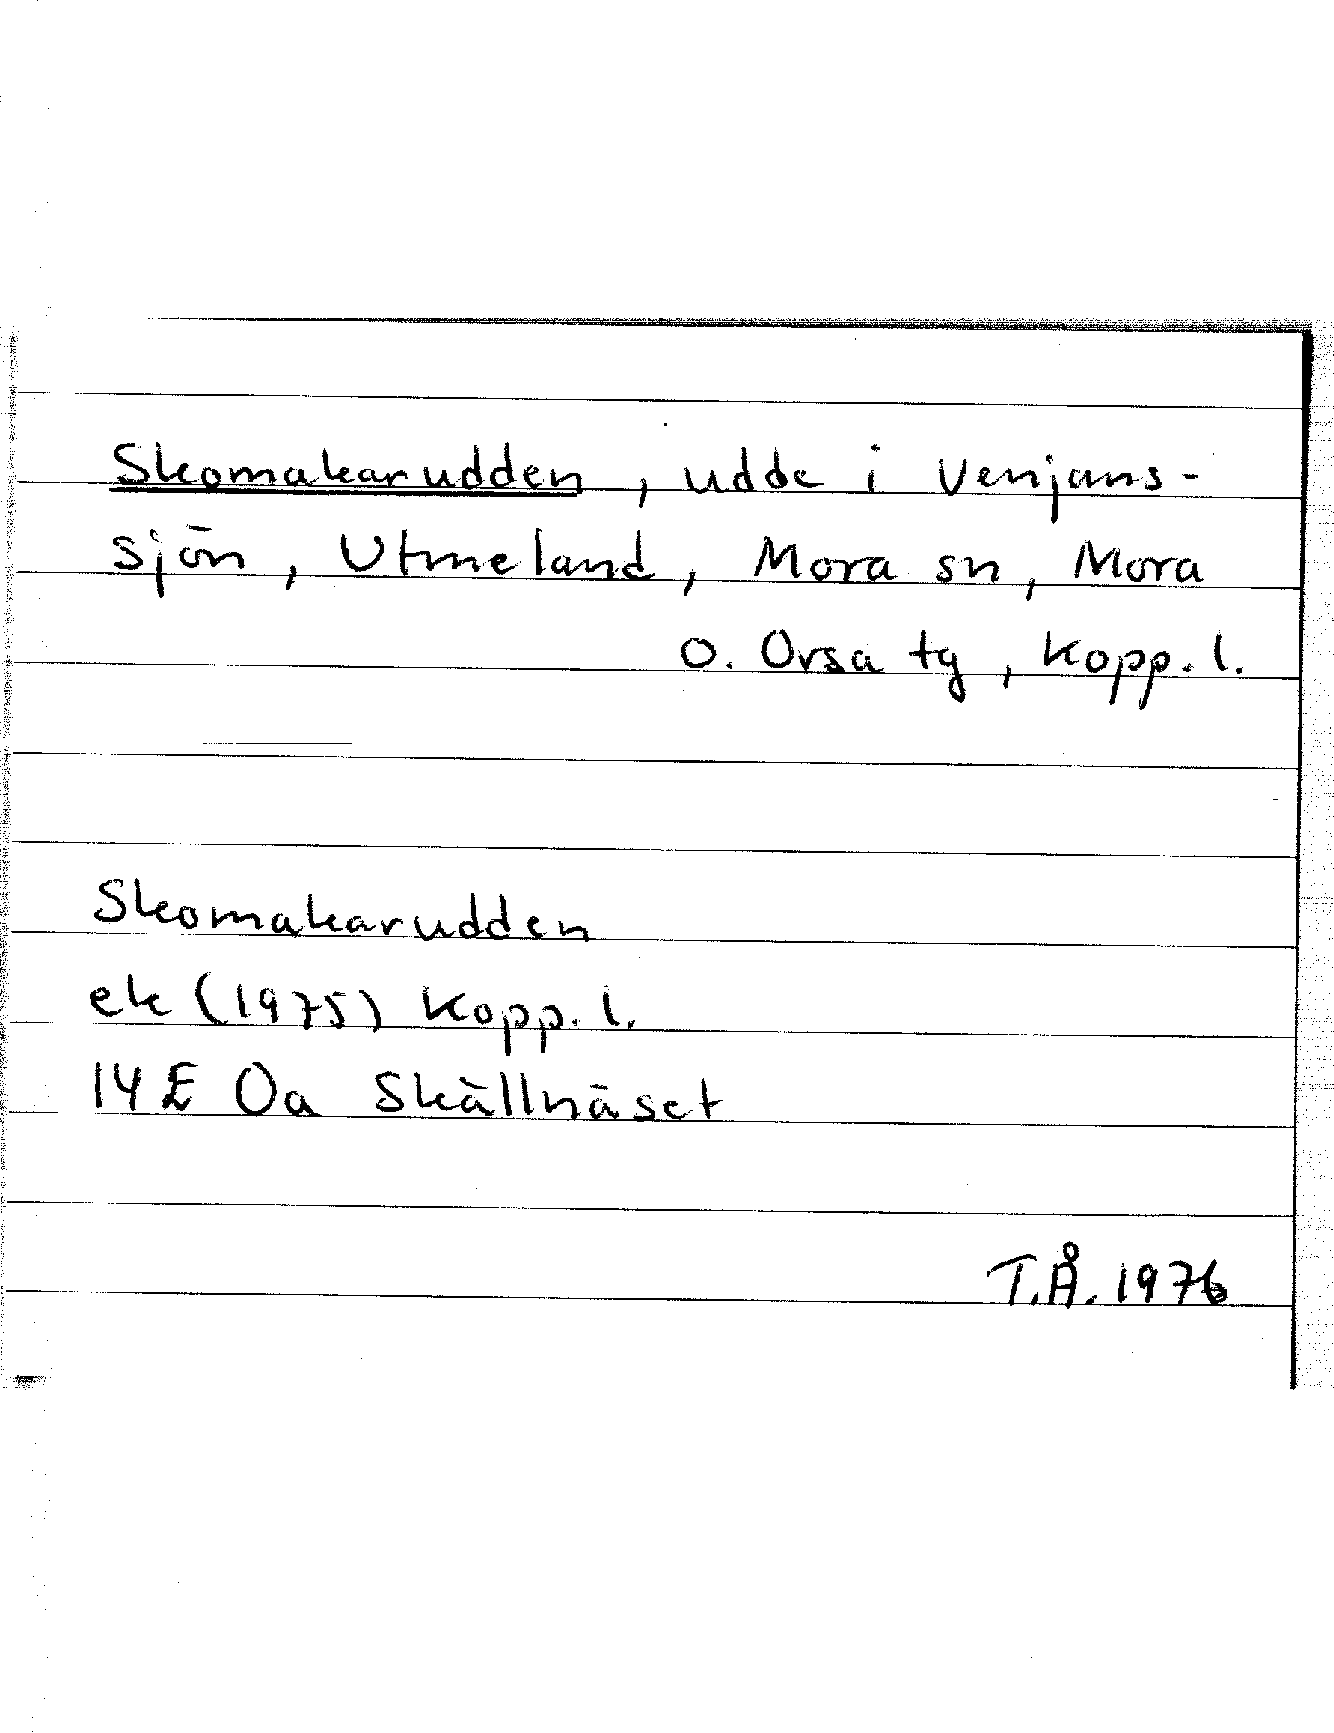 Skomakarudden, udde i Venjans-
sjön, Utmeland, Mora sn, Mora
o. Orsa tg, Kopp. l.
Skomakarudden
ek (1975) Kopp. l.
14E 0a Skällnäset
T.Å. 1976